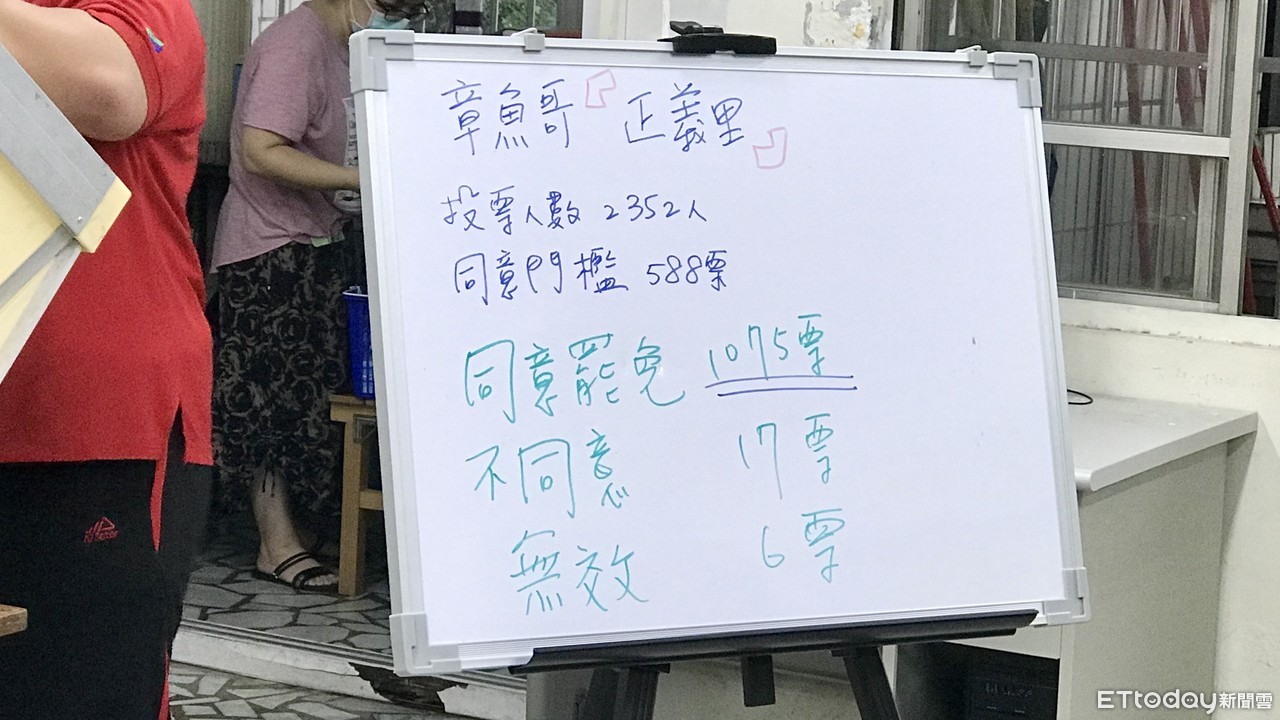 章魚哥『正義里』
投票人數 2352人
同意門檻 588票
同意罷免 1075票
不同意 17票
無效 6票
ETtoday新聞雲